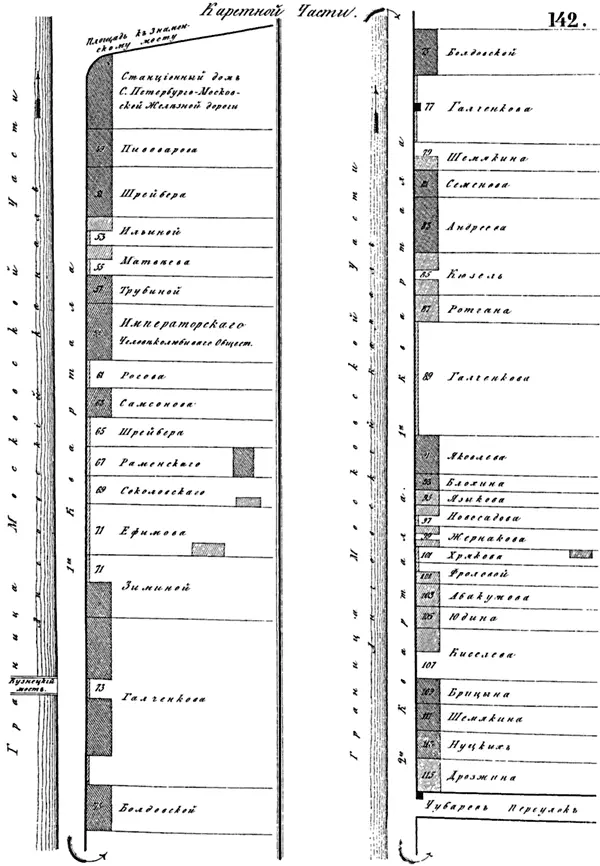 Каретной Части.
142.
Площадь къ Знамен-
скому мосту
Станціонный домъ
С. Петербурго-Москов-
ской Желѣзной дороги
Пивоварова
Шрейбера
53 Ильиной
55 Матвѣева
57 Трубиной
Императорскаго
Человѣколюбиваго Общест.
61 Росова
63 Самсонова
65 Шрейбера
67 Раменскаго
69 Соколовскаго
71 Ефимова
71 Зиминой
73 Галченкова
75 Болдовской
Граница Московской Части
1й Квартала
Кузнецкій
мостъ.
75 Болдовской
77 Галченкова
79 Шемякина
81 Семенова
83 Андреева
85 Кюзель
87 Ротгана
89 Галченкова
91 Яковлева
93 Блохина
95 Языкова
97 Новосадова
99 Жернакова
101 Хрякова
101 Фроловой
103 Абакумова
105 Юдина
107 Киселева
109 Брицына
111 Шемякина
113 Нуцкихъ
115 Дрозжина
Чубаровъ Переулокъ
Граница Московской Части
1й Квартала
2й Квартала.